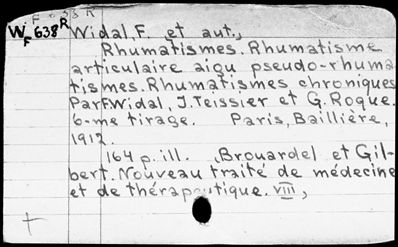 F 638 R
W F 638 R Widal, F. et aut.,
Rhumatismes. Rhumatisme
articulaire aigu pseudo-rhuma-
tismes. Rhumatismes chroniques
Par F. Widal, J. Teissier et G. Roque.
6-me tirage. Paris, Baillière,
1912.
164 p. ill. Brouardel et Gil-
bert. Nouveau traité de médecine
et de thérapeutique. VIII,